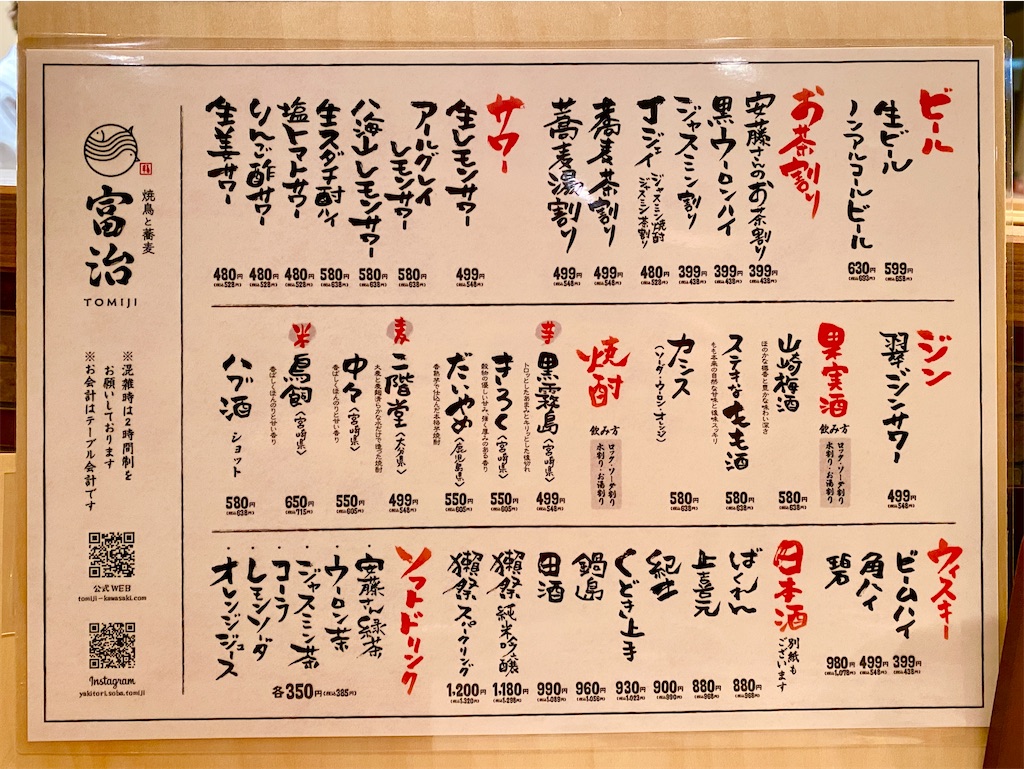 ビール
生ビール 599円 (税込658円)
ノンアルコールビール 630円 (税込693円)
お茶割り
安藤さんのお茶割り 399円 (税込438円)
黒ウーロンハイ 399円 (税込438円)
ジャスミン割り 399円 (税込438円)
JJ ジャスミン焼酎 ジャスミン茶割り 480円 (税込528円)
蕎麦茶割り 499円 (税込548円)
蕎麦湯割り 499円 (税込548円)
サワー
生レモンサワー 499円 (税込548円)
アールグレイレモンサワー 580円 (税込638円)
八海山レモンサワー 580円 (税込638円)
生スダチ酎ハイ 580円 (税込638円)
塩トマトサワー 480円 (税込528円)
りんご酢サワー 480円 (税込528円)
生姜サワー 480円 (税込528円)
ジン
翠ジンサワー 499円 (税込548円)
果実酒
飲み方
ロック・ソーダ割り
水割り・お湯割り
山崎梅酒 580円 (税込638円)
ほのかな樽香と豊かな味わい深さ
ステキなもも酒 580円 (税込638円)
もも本来の自然な甘味と後味スッキリ
カシス 580円 (税込638円)
(ソーダ・ウーロン・オレンジ)
焼酎
飲み方
ロック・ソーダ割り
水割り・お湯割り
芋
黒霧島〈宮崎県〉 499円 (税込548円)
トロッとしたあまみとキリッとした後切れ
きろく〈宮崎県〉 550円 (税込605円)
穀物の優しい甘み、強く厚みのある香り
だいやめ〈鹿児島県〉 550円 (税込605円)
香熟芋で仕込んだ本格芋焼酎
麦
二階堂〈大分県〉 499円 (税込548円)
中々〈宮崎県〉 550円 (税込605円)
香ばしくほんのりと甘い香り
米
鳥飼 650円 (税込715円)
香ばしくほんのりと甘い香り
ハブ酒 ショット 580円 (税込638円)
ウィスキー
ビームハイ 399円 (税込438円)
角ハイ 499円 (税込548円)
碧 980円 (税込1,078円)
日本酒
別紙もございます
ばくれん 880円 (税込968円)
上喜元 880円 (税込968円)
紀土 900円 (税込990円)
くどき上手 930円 (税込1,023円)
鍋島 960円 (税込1,056円)
田酒 990円 (税込1,089円)
獺祭 純米吟醸 1,180円 (税込1,298円)
獺祭 スパークリング 1,200円 (税込1,320円)
ソフトドリンク
・安藤さん緑茶
・ウーロン茶
・ジャスミン茶
・コーラ
・レモンソーダ
・オレンジジュース
各350円(税込385円)
焼鳥と蕎麦
富治
TOMIJI
※混雑時は2時間制を
お願いしております
※お会計はテーブル会計です
公式WEB
tomiji-kawasaki.com
Instagram
yakitori.soba.tomiji